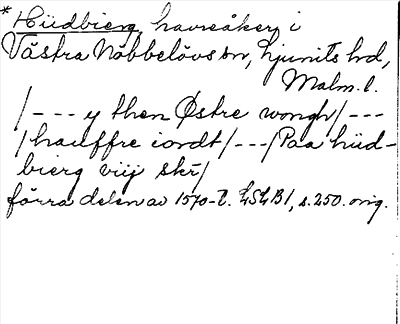 * Hüdbierg, havreåker, i
Västra Nöbbelövs sn, Ljunits hd,
Malm. l.
/--- y then Østre wongh/---
/hauffre iordt/---/Paa hüd-
bierg viij skr/
förra delen av 1570-t. LSLB1, s. 250. orig.